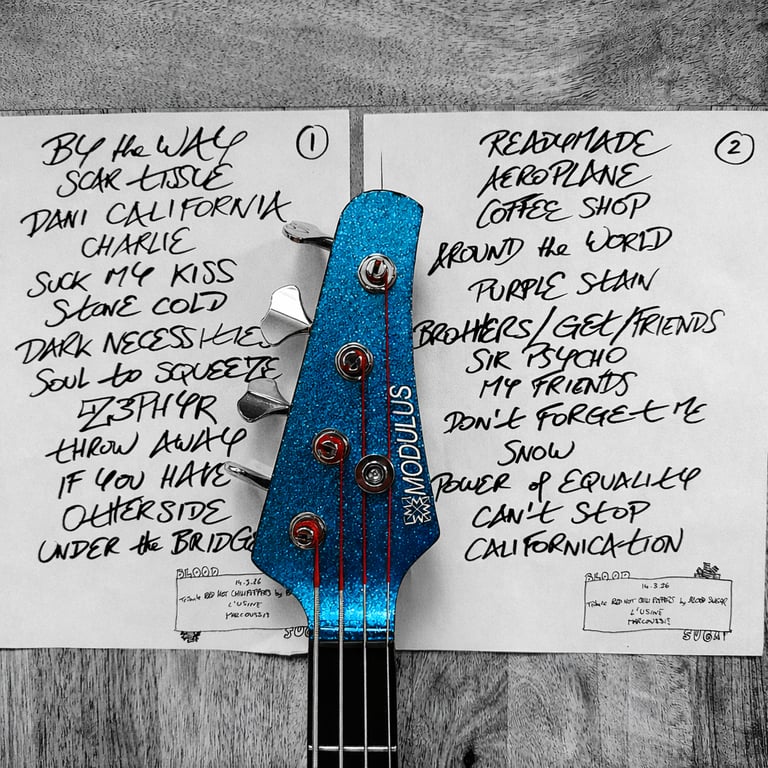 BY the WAY 1
SCAR TISSUE
DANI CALIFORNIA
CHARLIE
SUCK MY KISS
STONE COLD
DARK NECESSITIES
SOUL to SQUEEZE
Z3PHYR
THROW AWAY
IF YOU HAVE
OTHERSIDE
UNDER the BRIDGE
BLOOD
14.3.26
Tribute RED HOT CHILI PEPPERS by
L'USINE
MARCOUSSIS
MODULUS
READYMADE 2
AEROPLANE
COFFEE SHOP
AROUND the WORLD
PURPLE STAIN
BROTHERS/GET/FRIENDS
SIR PSYCHO
MY FRIENDS
DON'T FORGET ME
SNOW
POWER of EQUALITY
CAN'T STOP
CALIFORNICATION
BLOOD
14.3.26
Tribute RED HOT CHILI PEPPERS by BLOOD SUGAR
L'USINE
MARCOUSSIS
SUGAR